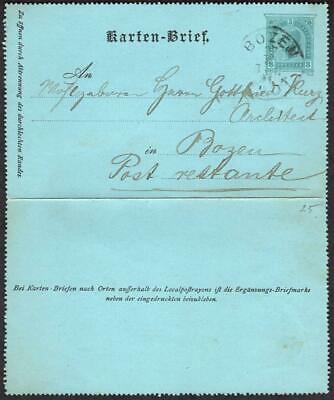 Karten-Brief.
Zu öffnen durch Abtrennung des durchlochten Randes.
3 3
BOZEN
An
Wohlgeboren Herrn Gottfried Kurz
Architect
in
Bozen
Post restante
25.
Bei Karten-Briefen nach Orten ausserhalb des Localpostrayons ist die Ergänzungs-Briefmarke
neben der eingedruckten beizukleben.